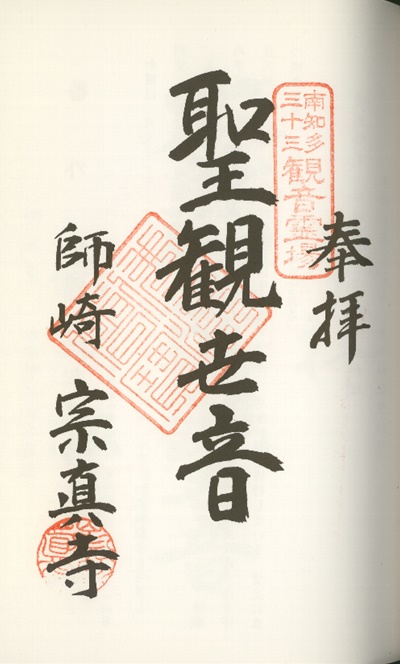 南知多
三十三観音霊場
奉拝
聖観世音
師崎 宗真寺